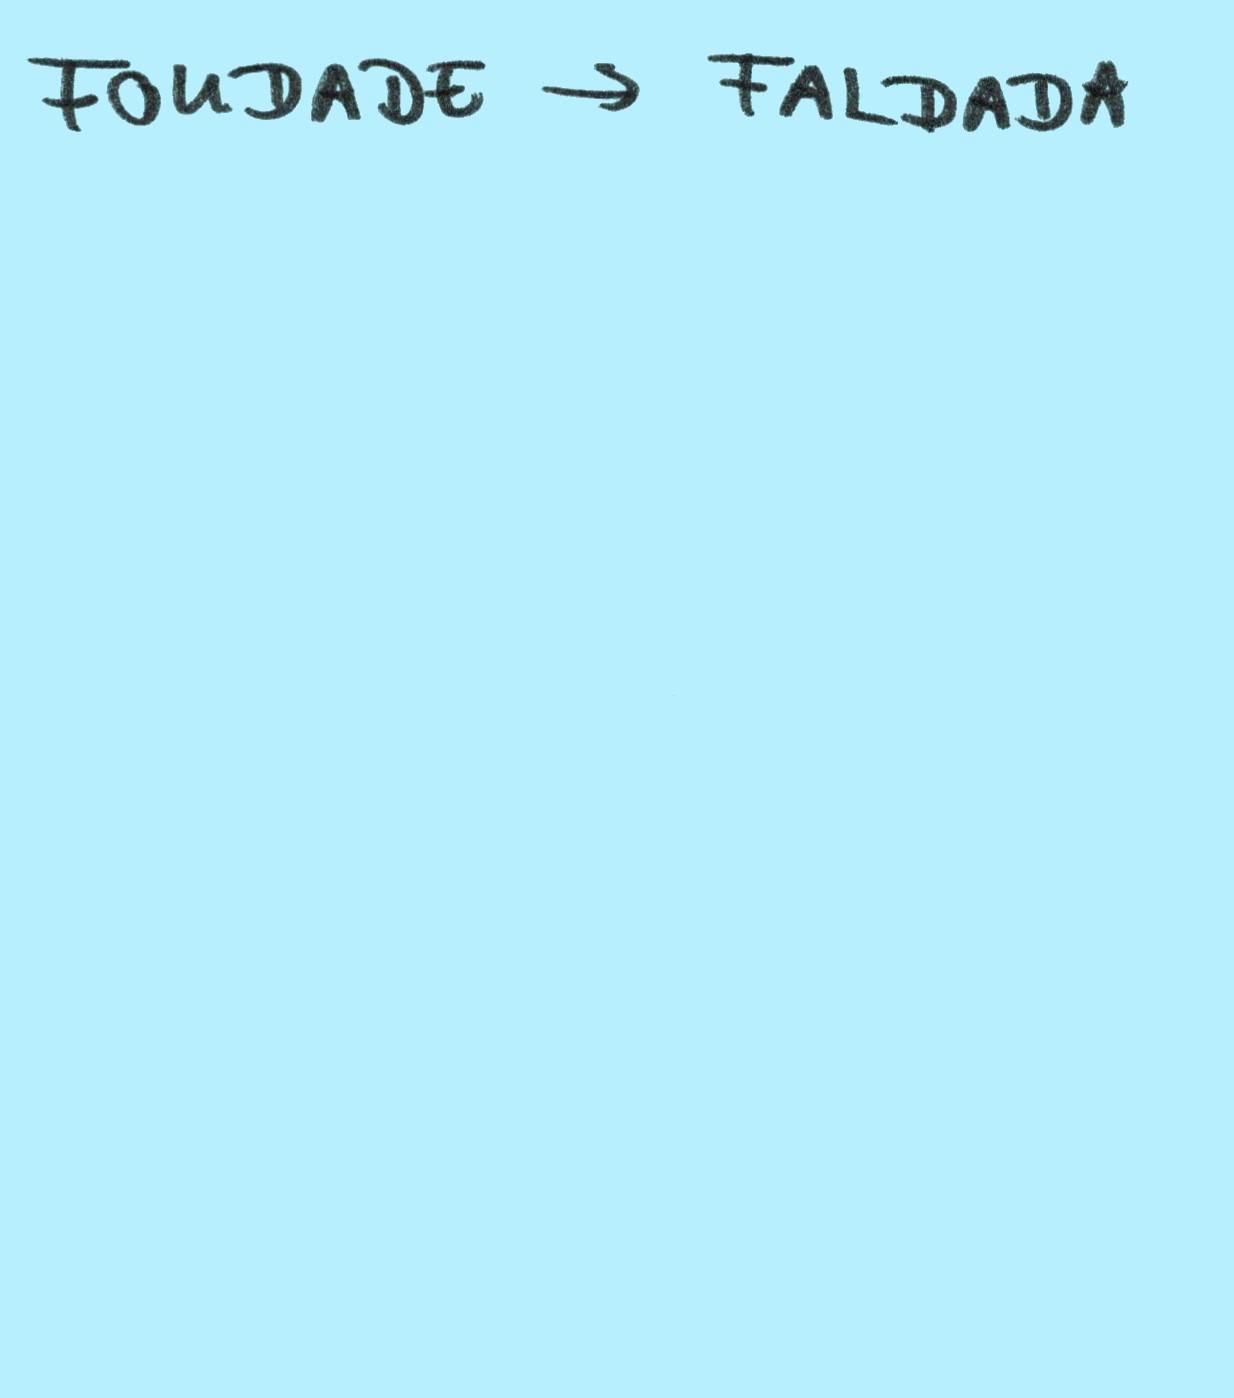 FOUDADE → FALDADA